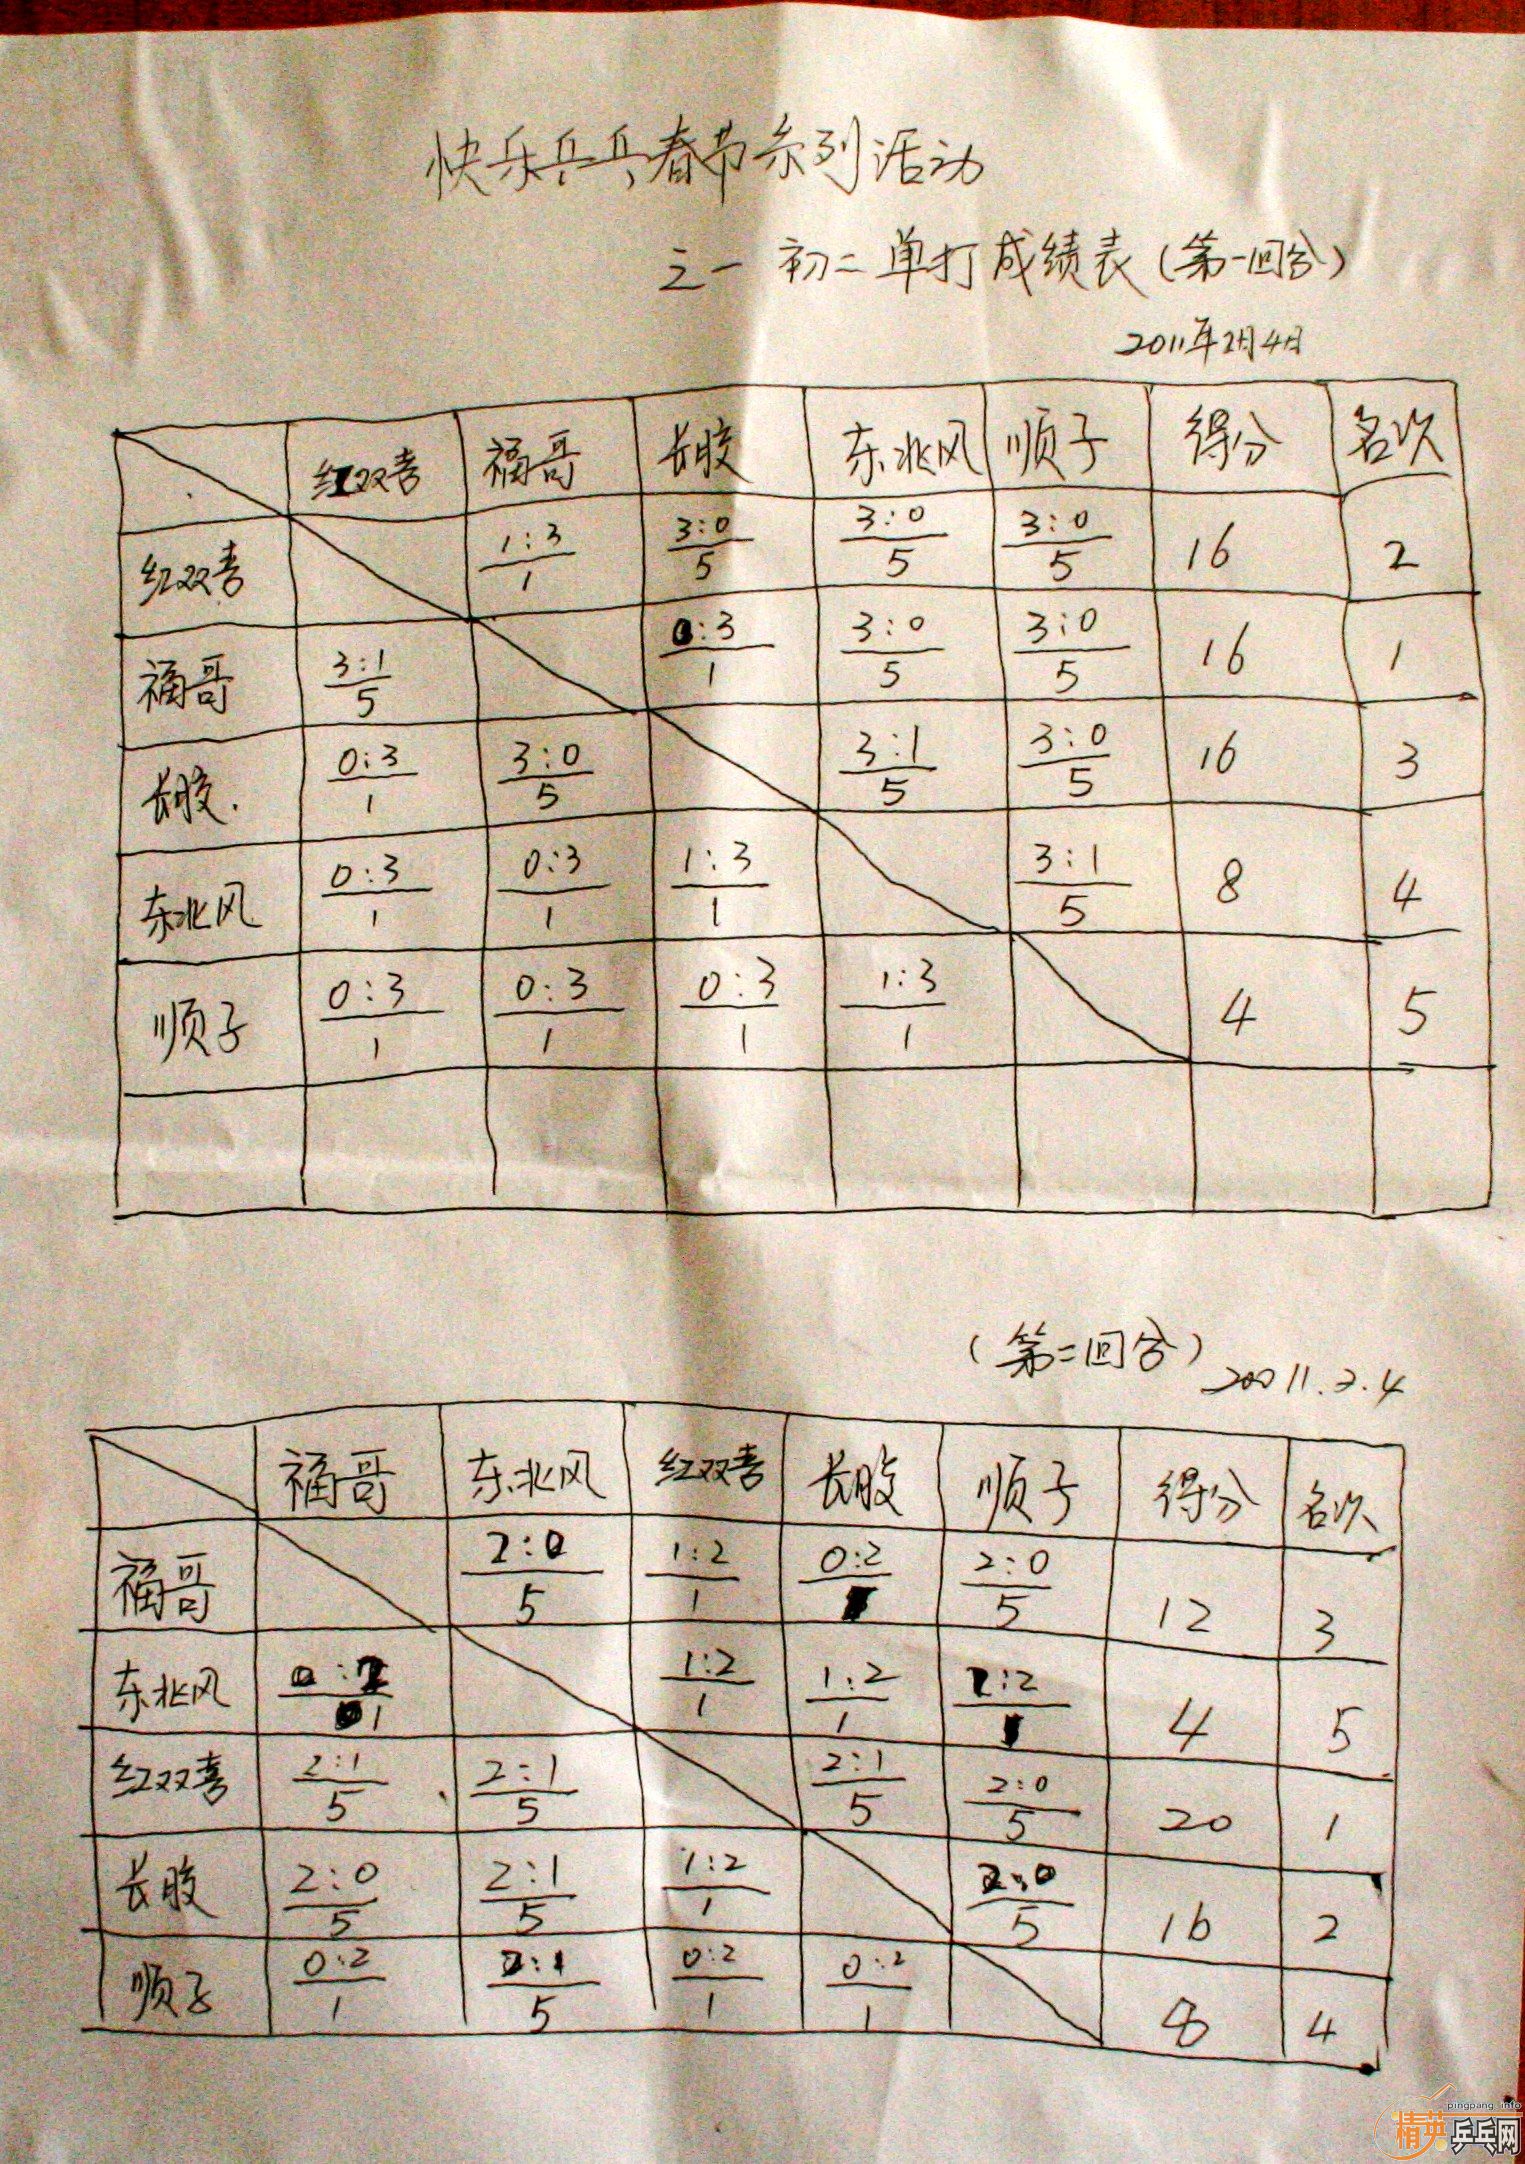 快乐乒乓春节系列活动
之一 初二单打成绩表(第一回合)
2011年2月4日
红双喜 福哥 长胶 东北风 顺子 得分 名次
红双喜 1:3/1 3:0/5 3:0/5 3:0/5 16 2
福哥 3:1/5 0:3/1 3:0/5 3:0/5 16 1
长胶 0:3/1 3:0/5 3:1/5 3:0/5 16 3
东北风 0:3/1 0:3/1 1:3/1 3:1/5 8 4
顺子 0:3/1 0:3/1 0:3/1 1:3/1 4 5
(第二回合)
2011.2.4
福哥 东北风 红双喜 长胶 顺子 得分 名次
福哥 2:0/5 1:2/1 0:2/1 2:0/5 12 3
东北风 0:2/1 1:2/1 1:2/1 1:2/1 4 5
红双喜 2:1/5 2:1/5 2:1/5 2:0/5 20 1
长胶 2:0/5 2:1/5 1:2/1 2:0/5 16 2
顺子 0:2/1 2:1/5 0:2/1 0:2/1 8 4
pingpang.info
精英乒乓网